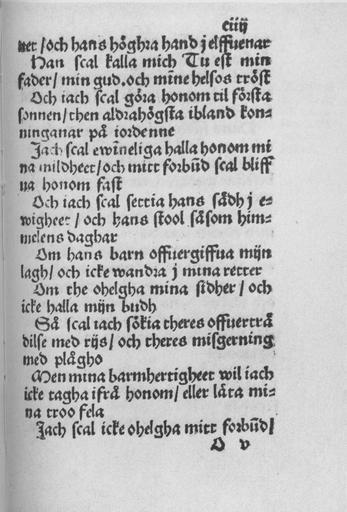 ciiij
net / och hans höghra hand j elffuenar
Han scal kalla mich Tu est min
fader / min gud. och mine helsos tröst
Och iach scal göra honom til första
sonnen / then aldrahögsta ibland kon-
ninganar på iordenne
Jach scal ewineliga halla honom mi
na mildheet / och mitt forbūd scal bliff
na honom fast
Och iach scal settia hans sädh j e-
wigheet / och hans stool såsom him-
melens daghar
Om hans barn offuergiffua mijn
lagh / och icke wandra j mina retter
Om the ohelgha mina sidher / och
icke halla mijn budh
Så scal iach sökia theres offuerträ
dilse med rijs / och theres misgerning
med plågho
Men mina barmhertigheet wil iach
icke tagha ifrå honom / eller låta mi-
na troo fela
Jach scal icke ohelgha mitt forbūd /
O v